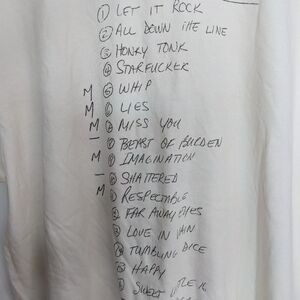 ① LET IT ROCK
② ALL DOWN THE LINE
③ HONKY TONK
④ STARFUCKER
M ⑤ WHIP
M ⑥ LIES
M ⑦ MISS YOU
BEAST OF BURDEN
M IMAGINATION
SHATTERED
M RESPECTABLE
FAR AWAY EYES
LOVE IN VAIN
TUMBLING DICE
HAPPY
SWEET